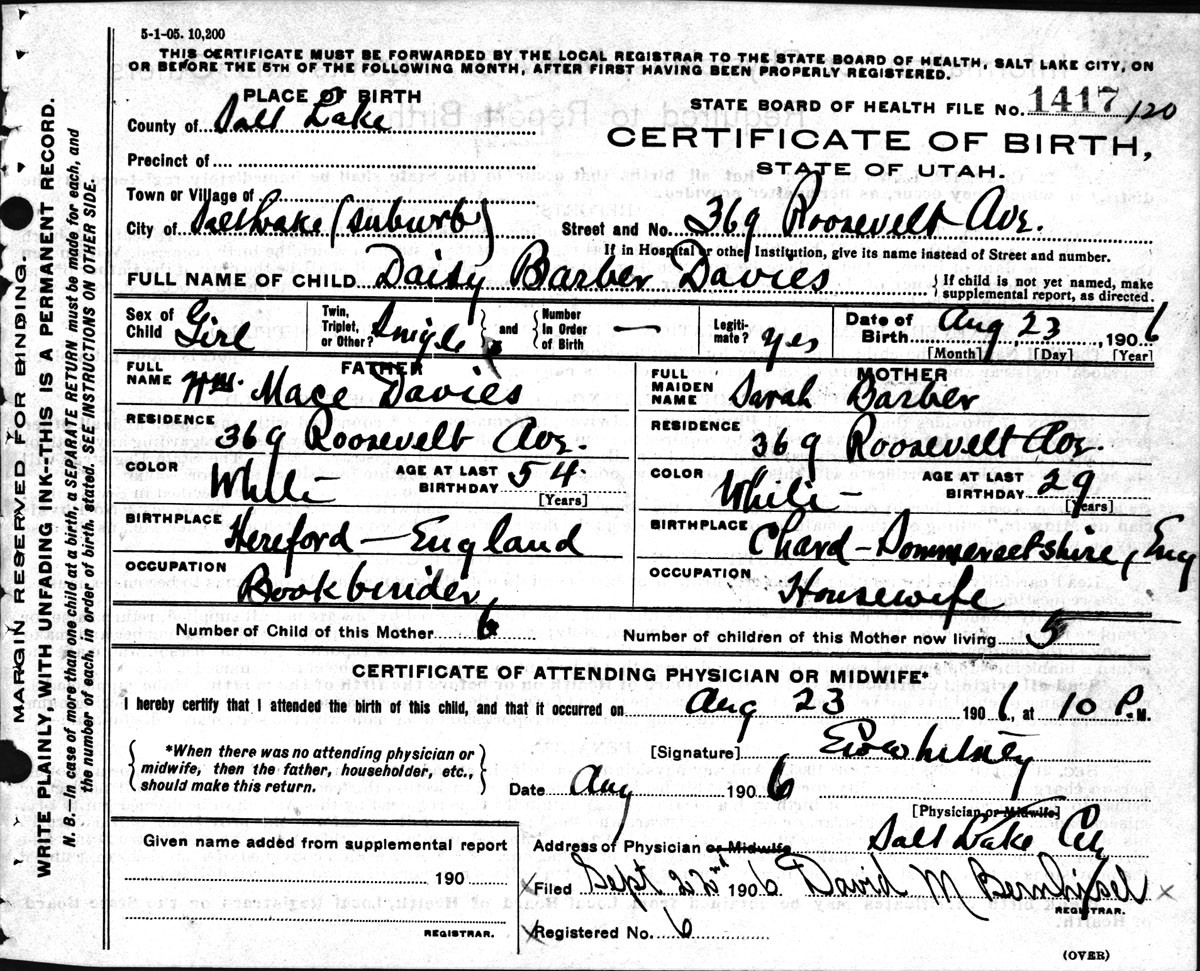 5-1-05. 10,200
THIS CERTIFICATE MUST BE FORWARDED BY THE LOCAL REGISTRAR TO THE STATE BOARD OF HEALTH, SALT LAKE CITY, ON
OR BEFORE THE 5TH OF THE FOLLOWING MONTH, AFTER FIRST HAVING BEEN PROPERLY REGISTERED.
PLACE OF BIRTH
STATE BOARD OF HEALTH FILE No. 1417/120
County of Salt Lake
CERTIFICATE OF BIRTH,
Precinct of
STATE OF UTAH.
Town or Village of
City of Salt Lake (suburb) Street and No. 369 Roosevelt Ave.
If in Hospital or other Institution, give its name instead of Street and number.
FULL NAME OF CHILD Daisy Barber Davies {If child is not yet named, make
supplemental report, as directed.
Sex of Child Girl Twin, Triplet, or Other? Single and Number in Order of Birth — Legitimate? yes Date of Birth Aug 23, 1906
[Month] [Day] [Year]
FATHER
MOTHER
FULL NAME Wm. Mace Davies
FULL MAIDEN NAME Sarah Barber
RESIDENCE 369 Roosevelt Ave.
RESIDENCE 369 Roosevelt Ave.
COLOR White AGE AT LAST BIRTHDAY 54 [Years]
COLOR White AGE AT LAST BIRTHDAY 29 [Years]
BIRTHPLACE Hereford — England
BIRTHPLACE Chard - Sommersetshire, Eng
OCCUPATION Bookbinder
OCCUPATION Housewife
Number of Child of this Mother 6 Number of children of this Mother now living 5
CERTIFICATE OF ATTENDING PHYSICIAN OR MIDWIFE*
I hereby certify that I attended the birth of this child, and that it occurred on Aug 23 1906, at 10 P.M.
{*When there was no attending physician or
midwife, then the father, householder, etc.,
should make this return.}
[Signature]
Date Aug 1906
[Physician or Midwife]
Address of Physician or Midwife Salt Lake City
Given name added from supplemental report
190
REGISTRAR.
Filed Sept 22nd 1906 David M Bernhisel
REGISTRAR.
Registered No. 6
(OVER)
MARGIN RESERVED FOR BINDING.
WRITE PLAINLY, WITH UNFADING INK--THIS IS A PERMANENT RECORD.
N. B.—In case of more than one child at a birth, a SEPARATE RETURN must be made for each, and
the number of each, in order of birth, stated. SEE INSTRUCTIONS ON OTHER SIDE.